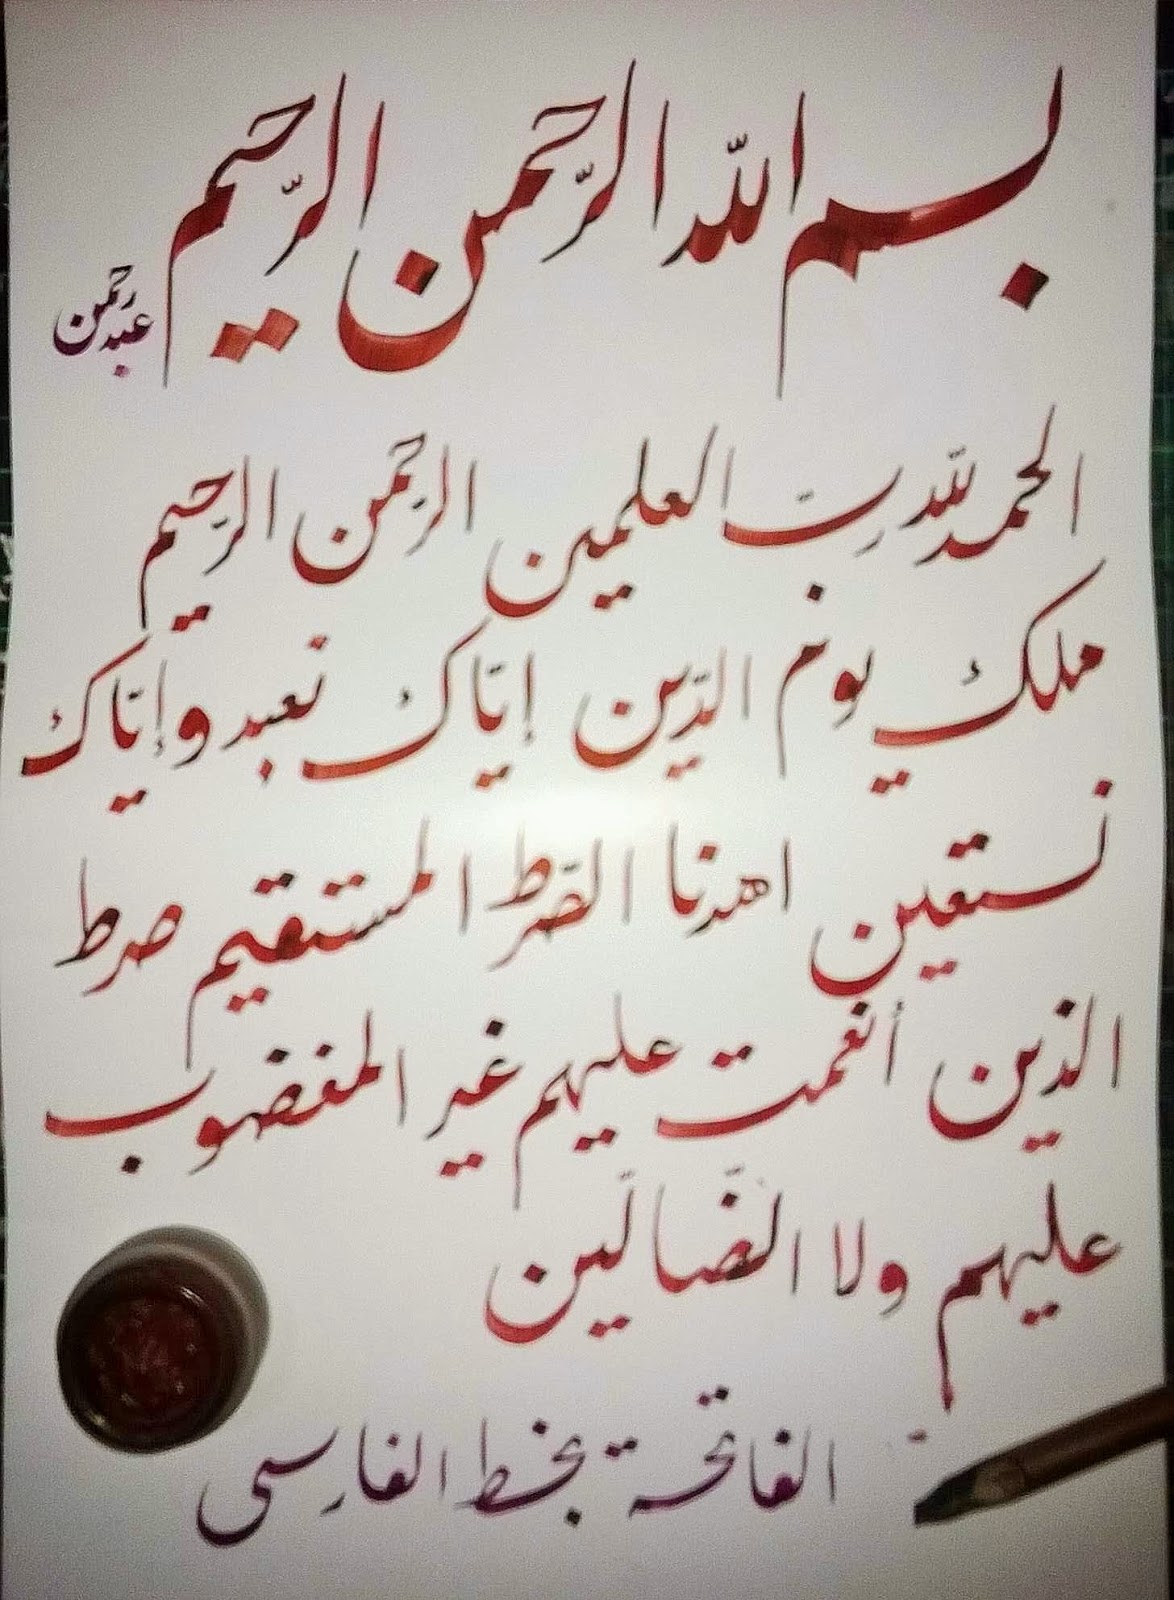 بسم الله الرّحمن الرّحيم
عبدرحمن
الحمد لله ربّ العلمين الرحمن الرّحيم
ملك يوم الدّين إيّاك نعبد وإيّاك
نستعين اهدنا الصّرط المستقيم صرط
الذين أنعمت عليهم غير المغضوب
عليهم ولا الضّالّين
الفاتحة بخط الفارسى